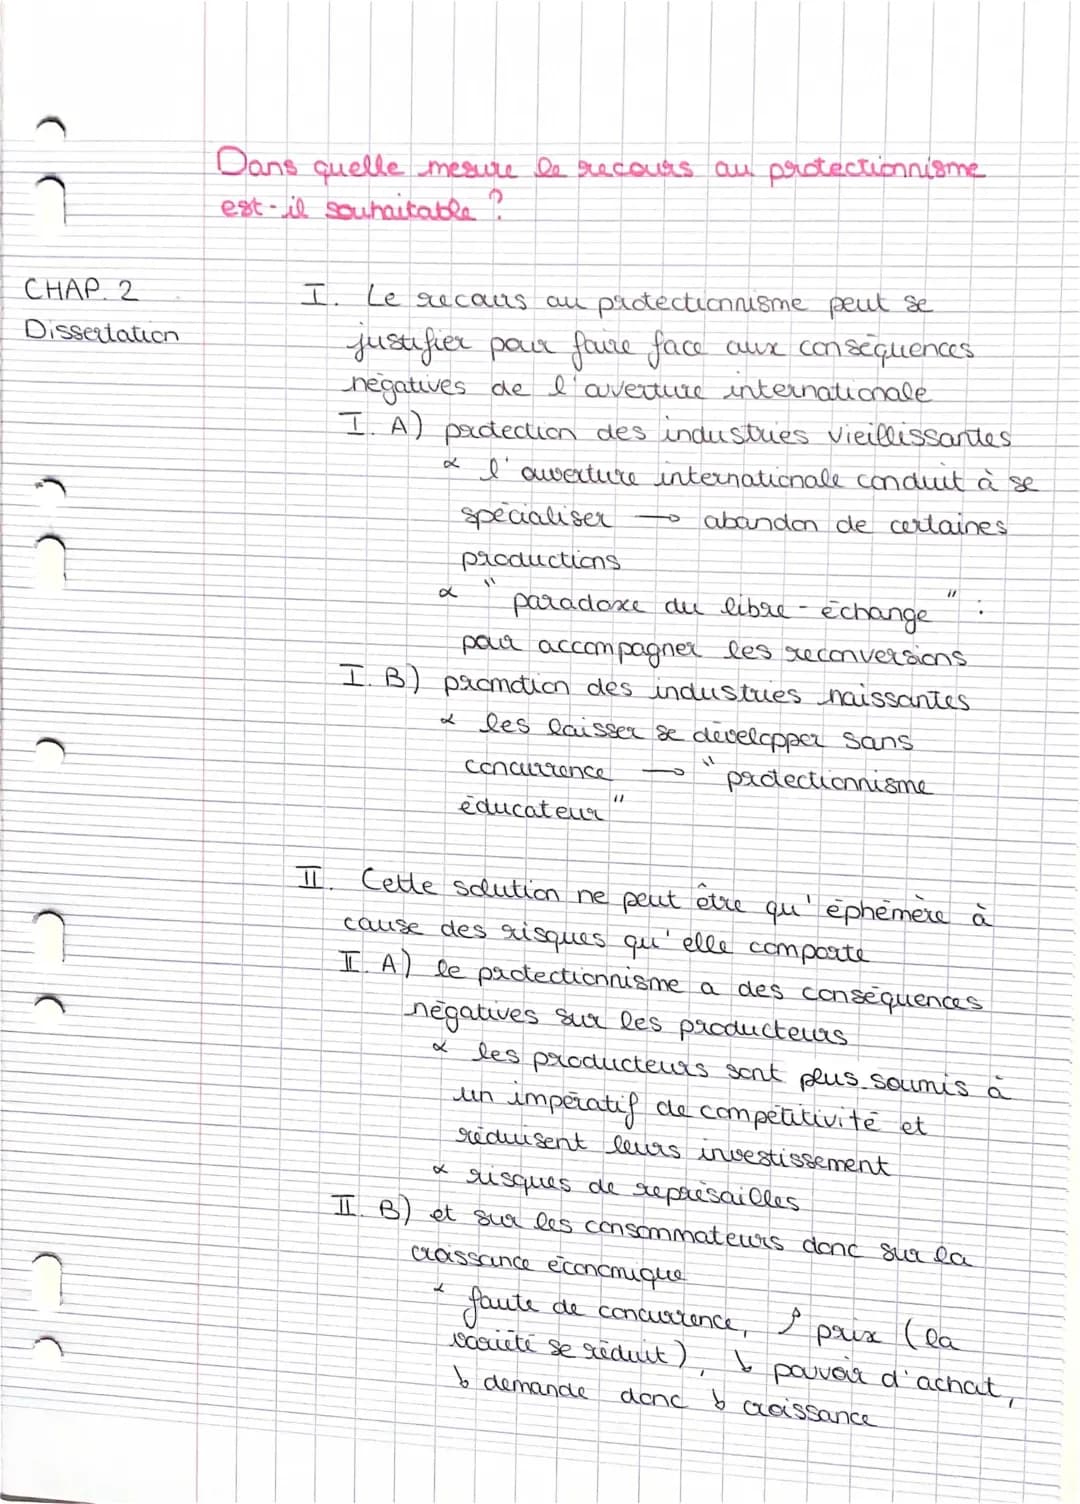 Dans quelle mesure le recours au protectionnisme
est-il souhaitable ?
CHAP. 2
Dissertation
I. Le recours au protectionnisme peut se
justifier pour faire face aux conséquences
négatives de l'ouverture internationale
I. A) protection des industries vieillissantes
α l'ouverture internationale conduit à se
spécialiser → abandon de certaines
productions
α "paradoxe du libre-échange" :
pour accompagner les reconversions
I. B) promotion des industries naissantes
α les laisser se développer sans
concurrence → "protectionnisme
éducateur"
II. Cette solution ne peut être qu'éphémère à
cause des risques qu'elle comporte
II. A) le protectionnisme a des conséquences
négatives sur les producteurs
α les producteurs sont plus soumis à
un impératif de compétitivité et
réduisent leurs investissement
α risques de représailles
II. B) et sur les consommateurs donc sur la
croissance économique
α faute de concurrence, ↗ prix (la
variété se réduit), ↘ pouvoir d'achat,
↘ demande donc ↘ croissance